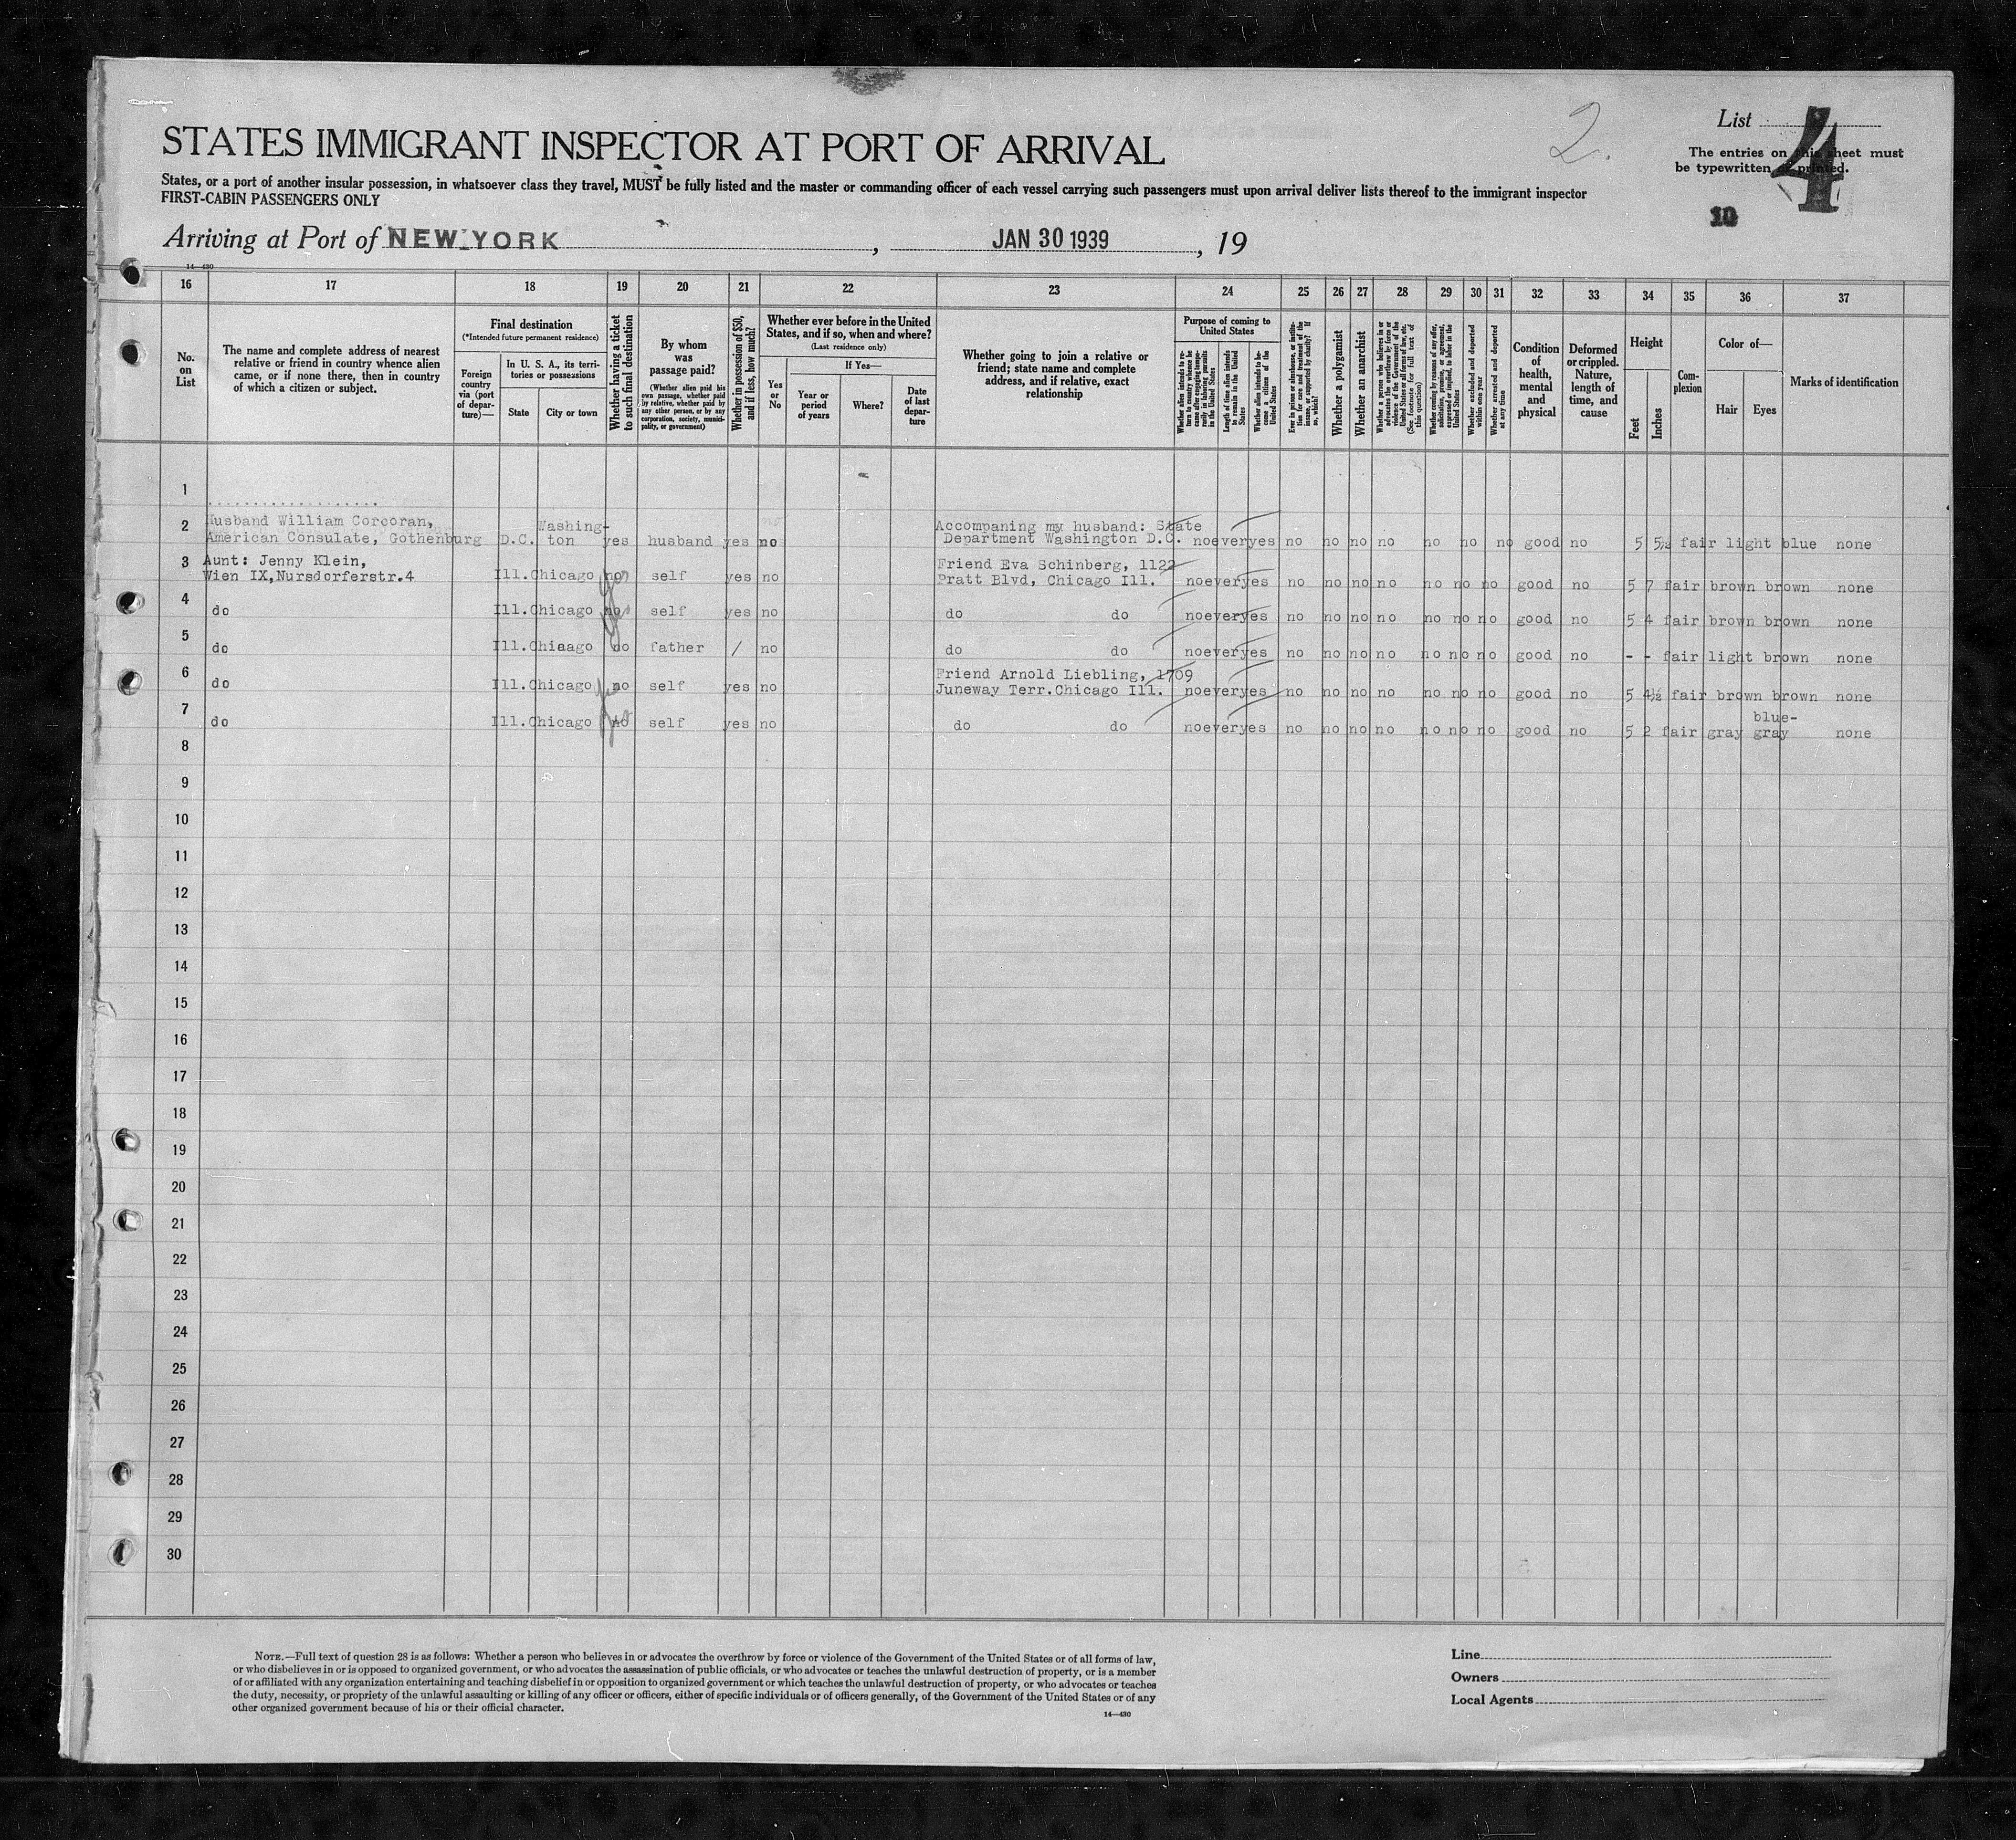 2.
List
4
The entries on this sheet must
be typewritten or printed.
10
STATES IMMIGRANT INSPECTOR AT PORT OF ARRIVAL
States, or a port of another insular possession, in whatsoever class they travel, MUST be fully listed and the master or commanding officer of each vessel carrying such passengers must upon arrival deliver lists thereof to the immigrant inspector
FIRST-CABIN PASSENGERS ONLY
Arriving at Port of NEW YORK, JAN 30 1939, 19
14—430
16 17 18 19 20 21 22 23 24 25 26 27 28 29 30 31 32 33 34 35 36 37
No.
on
List
The name and complete address of nearest
relative or friend in country whence alien
came, or if none there, then in country
of which a citizen or subject.
Final destination
(*Intended future permanent residence)
Foreign
country
via (port
of depar-
ture)—
In U. S. A., its terri-
tories or possessions
State
City or town
Whether having a ticket
to such final destination
By whom
was
passage paid?
(Whether alien paid his
own passage, whether paid
by relative, whether paid by
any other person, or by any
corporation, society, munici-
pality, or government)
Whether in possession of $50,
and if less, how much?
Whether ever before in the United
States, and if so, when and where?
(Last residence only)
Yes
or
No
If Yes—
Year or
period
of years
Where?
Date
of last
depar-
ture
Whether going to join a relative or
friend; state name and complete
address, and if relative, exact
relationship
Purpose of coming to
United States
Whether alien intends to re-
turn to country whence he
came after engaging tempo-
rarily in laboring pursuits
in the United States
Length of time alien intends
to remain in the United
States
Whether alien intends to be-
come a citizen of the
United States
Ever in prison or almshouse, or institu-
tion for care and treatment of the
insane, or supported by charity? If
so, which?
Whether a polygamist
Whether an anarchist
Whether a person who believes in or
advocates the overthrow by force or
violence of the Government of the
United States or all forms of law, etc.
(See footnote for full text of
this question)
Whether coming by reason of any offer,
solicitation, promise, or agreement,
expressed or implied, to labor in the
United States
Whether excluded and deported
within one year
Whether arrested and deported
at any time
Condition
of
health,
mental
and
physical
Deformed
or crippled.
Nature,
length of
time, and
cause
Height
Feet
Inches
Com-
plexion
Color of—
Hair
Eyes
Marks of identification
1
2 Husband William Corcoran, Washing- Accompaning my husband: State
American Consulate, Gothenburg D.C. ton yes husband yes no Department Washington D.C. no ever yes no no no no no no no good no 5 5½ fair light blue none
3 Aunt: Jenny Klein, Friend Eva Schinberg, 1122
Wien IX, Nursdorferstr.4 Ill. Chicago no yes self yes no Pratt Blvd, Chicago Ill. no ever yes no no no no no no no good no 5 7 fair brown brown none
4 do Ill. Chicago no yes self yes no do do no ever yes no no no no no no no good no 5 4 fair brown brown none
5 do Ill. Chiaago no father / no do do no ever yes no no no no no no no good no - - fair light brown none
6 Friend Arnold Liebling, 1709
do Ill. Chicago no self yes no Juneway Terr. Chicago Ill. no ever yes no no no no no no no good no 5 4½ fair brown brown none
7 blue-
do Ill. Chicago no self yes no do do no ever yes no no no no no no no good no 5 2 fair gray gray none
8
9
10
11
12
13
14
15
16
17
18
19
20
21
22
23
24
25
26
27
28
29
30
NOTE.—Full text of question 28 is as follows: Whether a person who believes in or advocates the overthrow by force or violence of the Government of the United States or of all forms of law,
or who disbelieves in or is opposed to organized government, or who advocates the assassination of public officials, or who advocates or teaches the unlawful destruction of property, or is a member
of or affiliated with any organization entertaining and teaching disbelief in or opposition to organized government or which teaches the unlawful destruction of property, or who advocates or teaches
the duty, necessity, or propriety of the unlawful assaulting or killing of any officer or officers, either of specific individuals or of officers generally, of the Government of the United States or of any
other organized government because of his or their official character.
14—430
Line
Owners
Local Agents